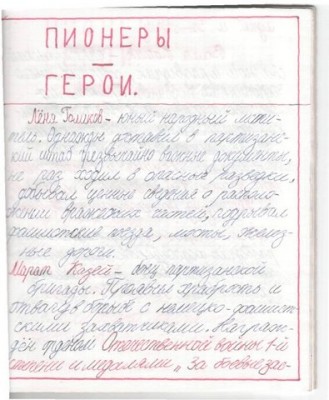 ПИОНЕРЫ
—
ГЕРОИ.
Лёня Голиков – юный народный мсти-
тель. Однажды доставил в партизан-
ский штаб чрезвычайно важные документы,
не раз ходил в опасные разведки,
добывал ценные сведения о располо-
жении вражеских частей, подрывал
фашистские поезда, мосты, желез-
ные дороги.
Марат Казей – боец партизанской
бригады. Проявил храбрость и
отвагу в боях с немецко-фашист-
скими захватчиками. Награж-
дён орденом Отечественной войны 1-й
степени и медалями „За боевые зас-